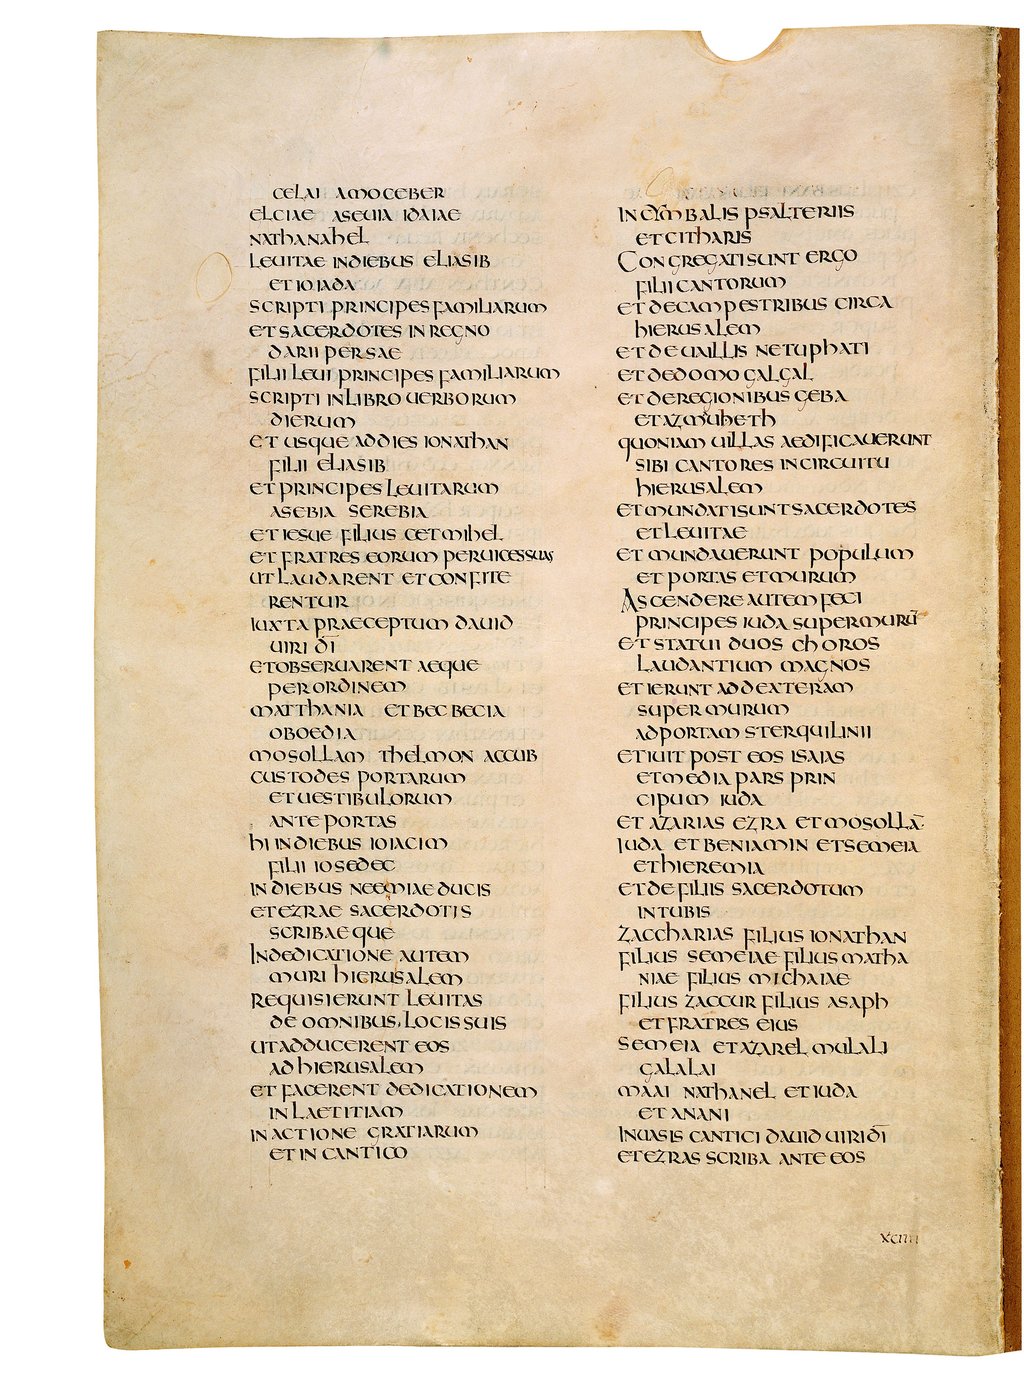 CELAI AMOCEBER
ELCIAE ASEUIA IDAIAE
NATHANAHEL
LEUITAE IN DIEBUS ELIASIB
ET IOIADA
SCRIPTI PRINCIPES FAMILIARUM
ET SACERDOTES IN REGNO
DARII PERSAE
FILII LEUI PRINCIPES FAMILIARUM
SCRIPTI IN LIBRO UERBORUM
DIERUM
ET USQUE AD DIES IONATHAN
FILII ELIASIB
ET PRINCIPES LEUITARUM
ASEBIA SEREBIA
ET IESUE FILIUS CETMIHEL
ET FRATRES EORUM PER UICES SUAS
UT LAUDARENT ET CONFITE
RENTUR
IUXTA PRAECEPTUM DAUID
UIRI D̅I̅
ET OBSERUARENT AEQUE
PER ORDINEM
MATTHANIA ET BECBECIA
OBOEDIA
MOSOLLAM THELMON ACCUB
CUSTODES PORTARUM
ET UESTIBULORUM
ANTE PORTAS
HI IN DIEBUS IOIACIM
FILII IOSEDEC
IN DIEBUS NEEMIAE DUCIS
ET EZRAE SACERDOTIS
SCRIBAEQUE
IN DEDICATIONE AUTEM
MURI HIERUSALEM
REQUISIERUNT LEUITAS
DE OMNIBUS LOCIS SUIS
UT ADDUCERENT EOS
AD HIERUSALEM
ET FACERENT DEDICATIONEM
IN LAETITIAM
IN ACTIONE GRATIARUM
ET IN CANTICO
IN CYMBALIS PSALTERIIS
ET CITHARIS
CONGREGATI SUNT ERGO
FILII CANTORUM
ET DE CAMPESTRIBUS CIRCA
HIERUSALEM
ET DE UILLIS NETUPHATI
ET DE DOMO GALGAL
ET DE REGIONIBUS GEBA
ET AZMUBETH
QUONIAM UILLAS AEDIFICAUERUNT
SIBI CANTORES IN CIRCUITU
HIERUSALEM
ET MUNDATI SUNT SACERDOTES
ET LEUITAE
ET MUNDAUERUNT POPULUM
ET PORTAS ET MURUM
ASCENDERE AUTEM FECI
PRINCIPES IUDA SUPER MURU̅
ET STATUI DUOS CHOROS
LAUDANTIUM MAGNOS
ET IERUNT AD DEXTERAM
SUPER MURUM
AD PORTAM STERQUILINII
ET IUIT POST EOS ISAIAS
ET MEDIA PARS PRIN
CIPUM IUDA
ET AZARIAS EZRA ET MOSOLLA̅
IUDA ET BENIAMIN ET SEMEIA
ET HIEREMIA
ET DE FILIIS SACERDOTUM
IN TUBIS
ZACCHARIAS FILIUS IONATHAN
FILIUS SEMEIAE FILIUS MATHA
NIAE FILIUS MICHAIAE
FILIUS ZACCUR FILIUS ASAPH
ET FRATRES EIUS
SEMEIA ET AZAREL MULALI
GALALAI
MAAI NATHANEL ET IUDA
ET ANANI
IN UASIS CANTICI DAUID UIRI D̅I̅
ET EZRAS SCRIBA ANTE EOS
XCIIII